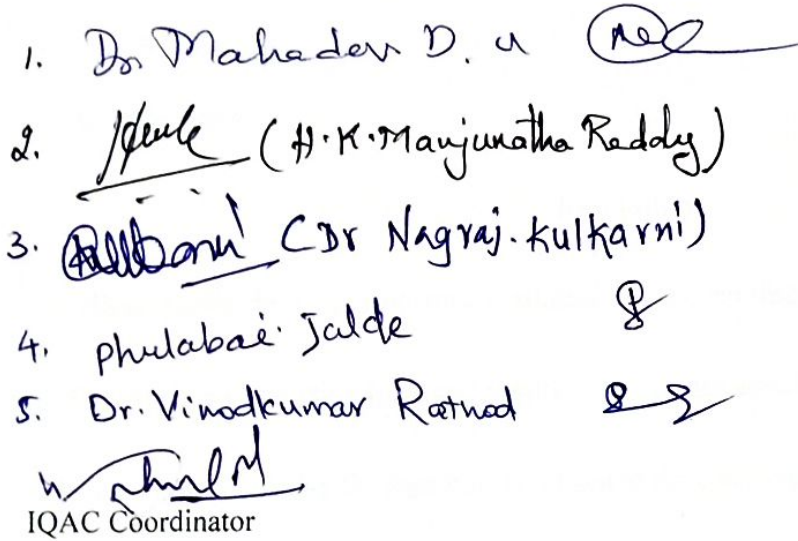 1. Dr Mahadev D. U
2. (H.K.Manjunatha Reddy)
3. (Dr Nagraj.Kulkarni)
4. Phulabai Jalde
5. Dr. Vinodkumar Rathod
IQAC Coordinator